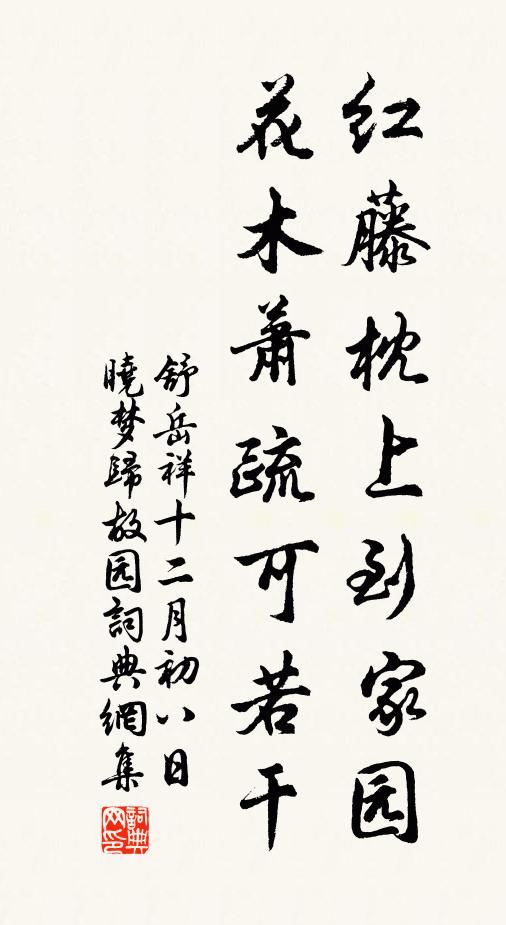 红藤枕上到家园
花木萧疏可若干
舒岳祥十二月初八日
晓梦归故园词典网集
词典网印